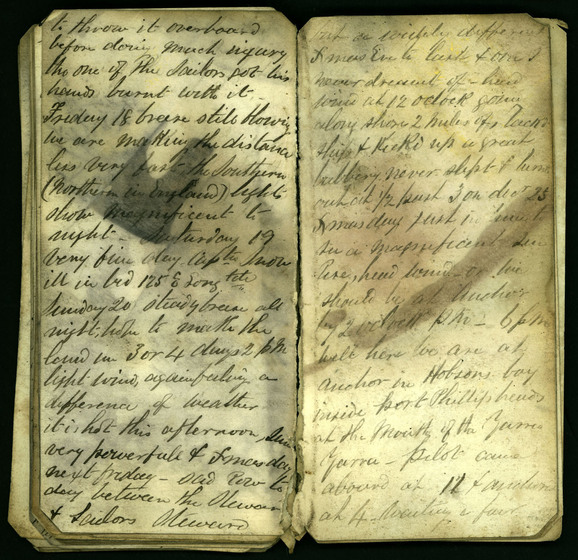 to throw it overboard
before doing much injury
tho one of the Sailors got his
hands burnt with it
Friday 18 breese still blowing
we are making the distance
less very fast the Southern
(Northern in England) lights
show magnificent to
night - Saturday 19
very fine day
ill in bed 175 E Long
Sunday 20 steady breese all
night hope to make the
land in 3 or 4 days 2 pm
light wind, again feeling a
difference of weather
it is hot this afternoon, Sun
very powerfull & Xmas day
next friday - sad row to
day between the Steward
& Sailors Steward
a widely different
Xmas Eve to last & one I
never dreamt of - head
wind at 12 oclock going
along shore 2 miles off
ship & kicked up a great
never slept & turn
out at 1/2 past 3 on Decr 25
Xmas day just in time to
a magnificent Sun
rise, head wind - or we
should be at anchor
by 2 o'clock P.M. - 6 pm
well here we are at
anchor in Hobsons bay
inside Port Phillip heads
at the Mouth of the Yarra
Yarra - pilot came
aboard at 12
at 4 - waiting a